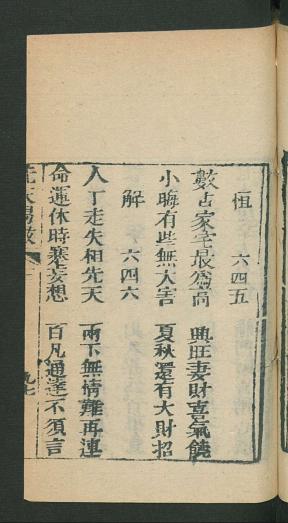 恒　六四五
數占家宅最爲高　興旺妻財喜氣饒
小晦有些無大害　夏秋還有大財招
解　六四六
人丁走失相先天　兩下無情難再連
命運休時莫妄想　百凡通達不須言